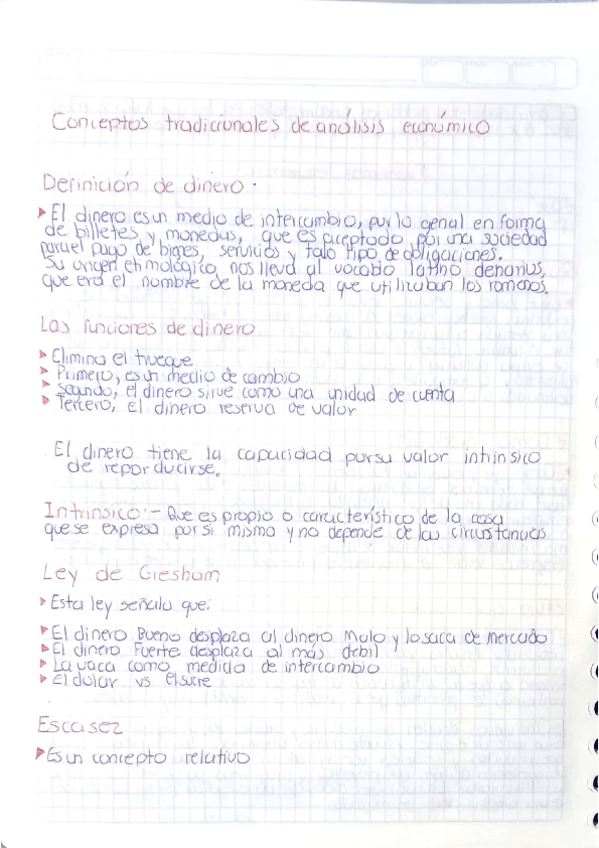 Conceptos tradicionales de análisis económico
Definición de dinero.
El dinero es un medio de intercambio, por lo genal en forma
de billetes y monedas, que es aceptado por una sociedad
para el pago de bienes, servicios y todo tipo de obligaciones.
Su origen etimológico nos lleva al vocablo latino denarius,
que era el nombre de la moneda que utilizaban los romanos.
Las funciones de dinero
Elimina el trueque
Primero, es un medio de cambio
Segundo, el dinero sirve como una unidad de cuenta
Tercero, El dinero reserva de valor
El dinero tiene la capacidad por su valor intrinsico
de reporducirse.
Intrinsico.- Que es propio o característico de la cosa
que se expresa por si misma y no depende de las circunstancias
Ley de Gresham
Esta ley señala que:
El dinero Bueno desplaza al dinero Malo y lo saca de mercado
El dinero Fuerte desplaza al más debil
La vaca como medida de intercambio
El dolar vs el sucre
Escasez
Es un concepto relativo